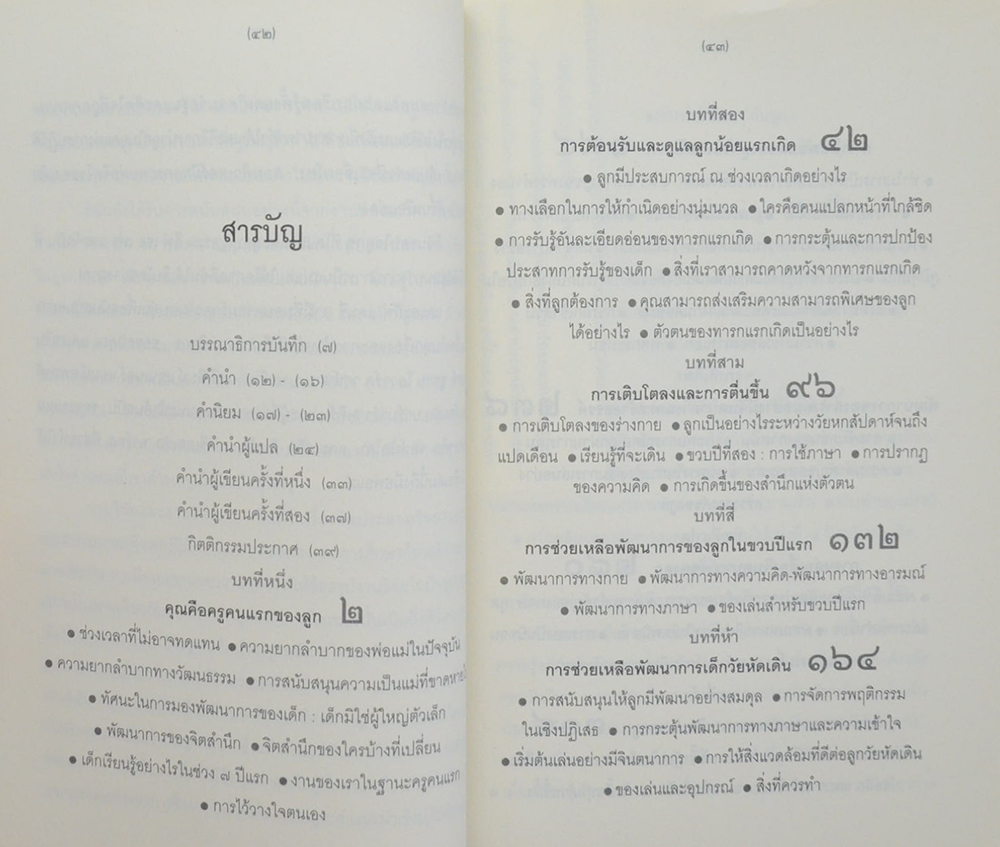 (๔๒)
สารบัญ
บรรณาธิการบันทึก (๗)
คำนำ (๑๒) - (๑๖)
คำนิยม (๑๗) - (๒๓)
คำนำผู้แปล (๒๔)
คำนำผู้เขียนครั้งที่หนึ่ง (๓๓)
คำนำผู้เขียนครั้งที่สอง (๓๗)
กิตติกรรมประกาศ (๓๙)
บทที่หนึ่ง
คุณคือครูคนแรกของลูก ๒
● ช่วงเวลาที่ไม่อาจทดแทน ● ความยากลำบากของพ่อแม่ในปัจจุบัน
● ความยากลำบากทางวัฒนธรรม ● การสนับสนุนความเป็นแม่ที่ขาดหาย
● ทัศนะในการมองพัฒนาการของเด็ก : เด็กมิใช่ผู้ใหญ่ตัวเล็ก
● พัฒนาการของจิตสำนึก ● จิตสำนึกของใครบ้างที่เปลี่ยน
● เด็กเรียนรู้อย่างไรในช่วง ๗ ปีแรก ● งานของเราในฐานะครูคนแรก
● การไว้วางใจตนเอง
(๔๓)
บทที่สอง
การต้อนรับและดูแลลูกน้อยแรกเกิด ๔๒
● ลูกมีประสบการณ์ ณ ช่วงเวลาเกิดอย่างไร
● ทางเลือกในการให้กำเนิดอย่างนุ่มนวล ● ใครคือคนแปลกหน้าที่ใกล้ชิด
● การรับรู้อันละเอียดอ่อนของทารกแรกเกิด ● การกระตุ้นและการปกป้อง
ประสาทการรับรู้ของเด็ก ● สิ่งที่เราสามารถคาดหวังจากทารกแรกเกิด
● สิ่งที่ลูกต้องการ ● คุณสามารถส่งเสริมความสามารถพิเศษของลูก
ได้อย่างไร ● ตัวตนของทารกแรกเกิดเป็นอย่างไร
บทที่สาม
การเติบโตลงและการตื่นขึ้น ๙๖
● การเติบโตลงของร่างกาย ● ลูกเป็นอย่างไรระหว่างวัยหกสัปดาห์จนถึง
แปดเดือน ● เรียนรู้ที่จะเดิน ● ขวบปีที่สอง : การใช้ภาษา ● การปรากฏ
ของความคิด ● การเกิดขึ้นของสำนึกแห่งตัวตน
บทที่สี่
การช่วยเหลือพัฒนาการของลูกในขวบปีแรก ๑๓๒
● พัฒนาการทางกาย ● พัฒนาการทางความคิด-พัฒนาการทางอารมณ์
● พัฒนาการทางภาษา ● ของเล่นสำหรับขวบปีแรก
บทที่ห้า
การช่วยเหลือพัฒนาการเด็กวัยหัดเดิน ๑๖๔
● การสนับสนุนให้ลูกมีพัฒนาอย่างสมดุล ● การจัดการพฤติกรรม
ในเชิงปฏิเสธ ● การกระตุ้นพัฒนาการทางภาษาและความเข้าใจ
● เริ่มต้นเล่นอย่างมีจินตนาการ ● การให้สิ่งแวดล้อมที่ดีต่อลูกวัยหัดเดิน
● ของเล่นและอุปกรณ์ ● สิ่งที่ควรทำ